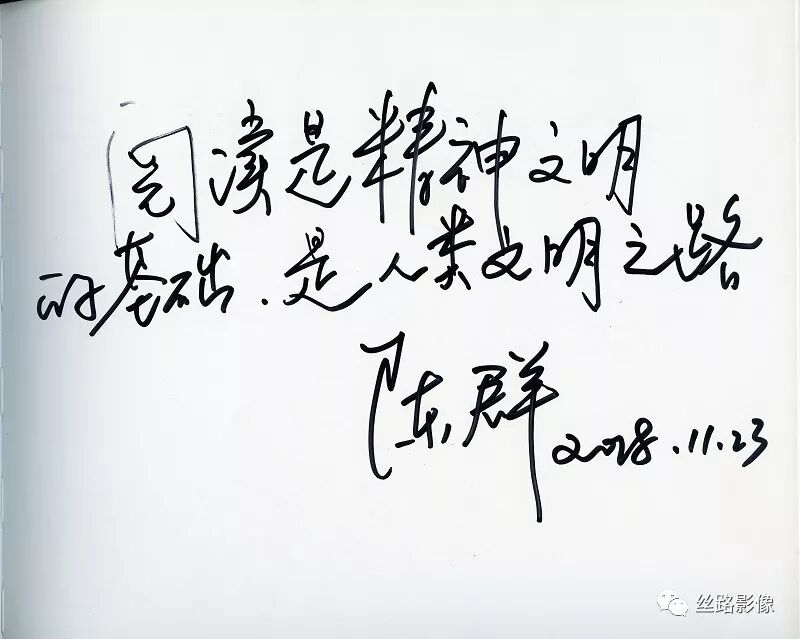 阅读是精神文明
的基础.是人类文明之路
陈群 2018.11.23
丝路影像